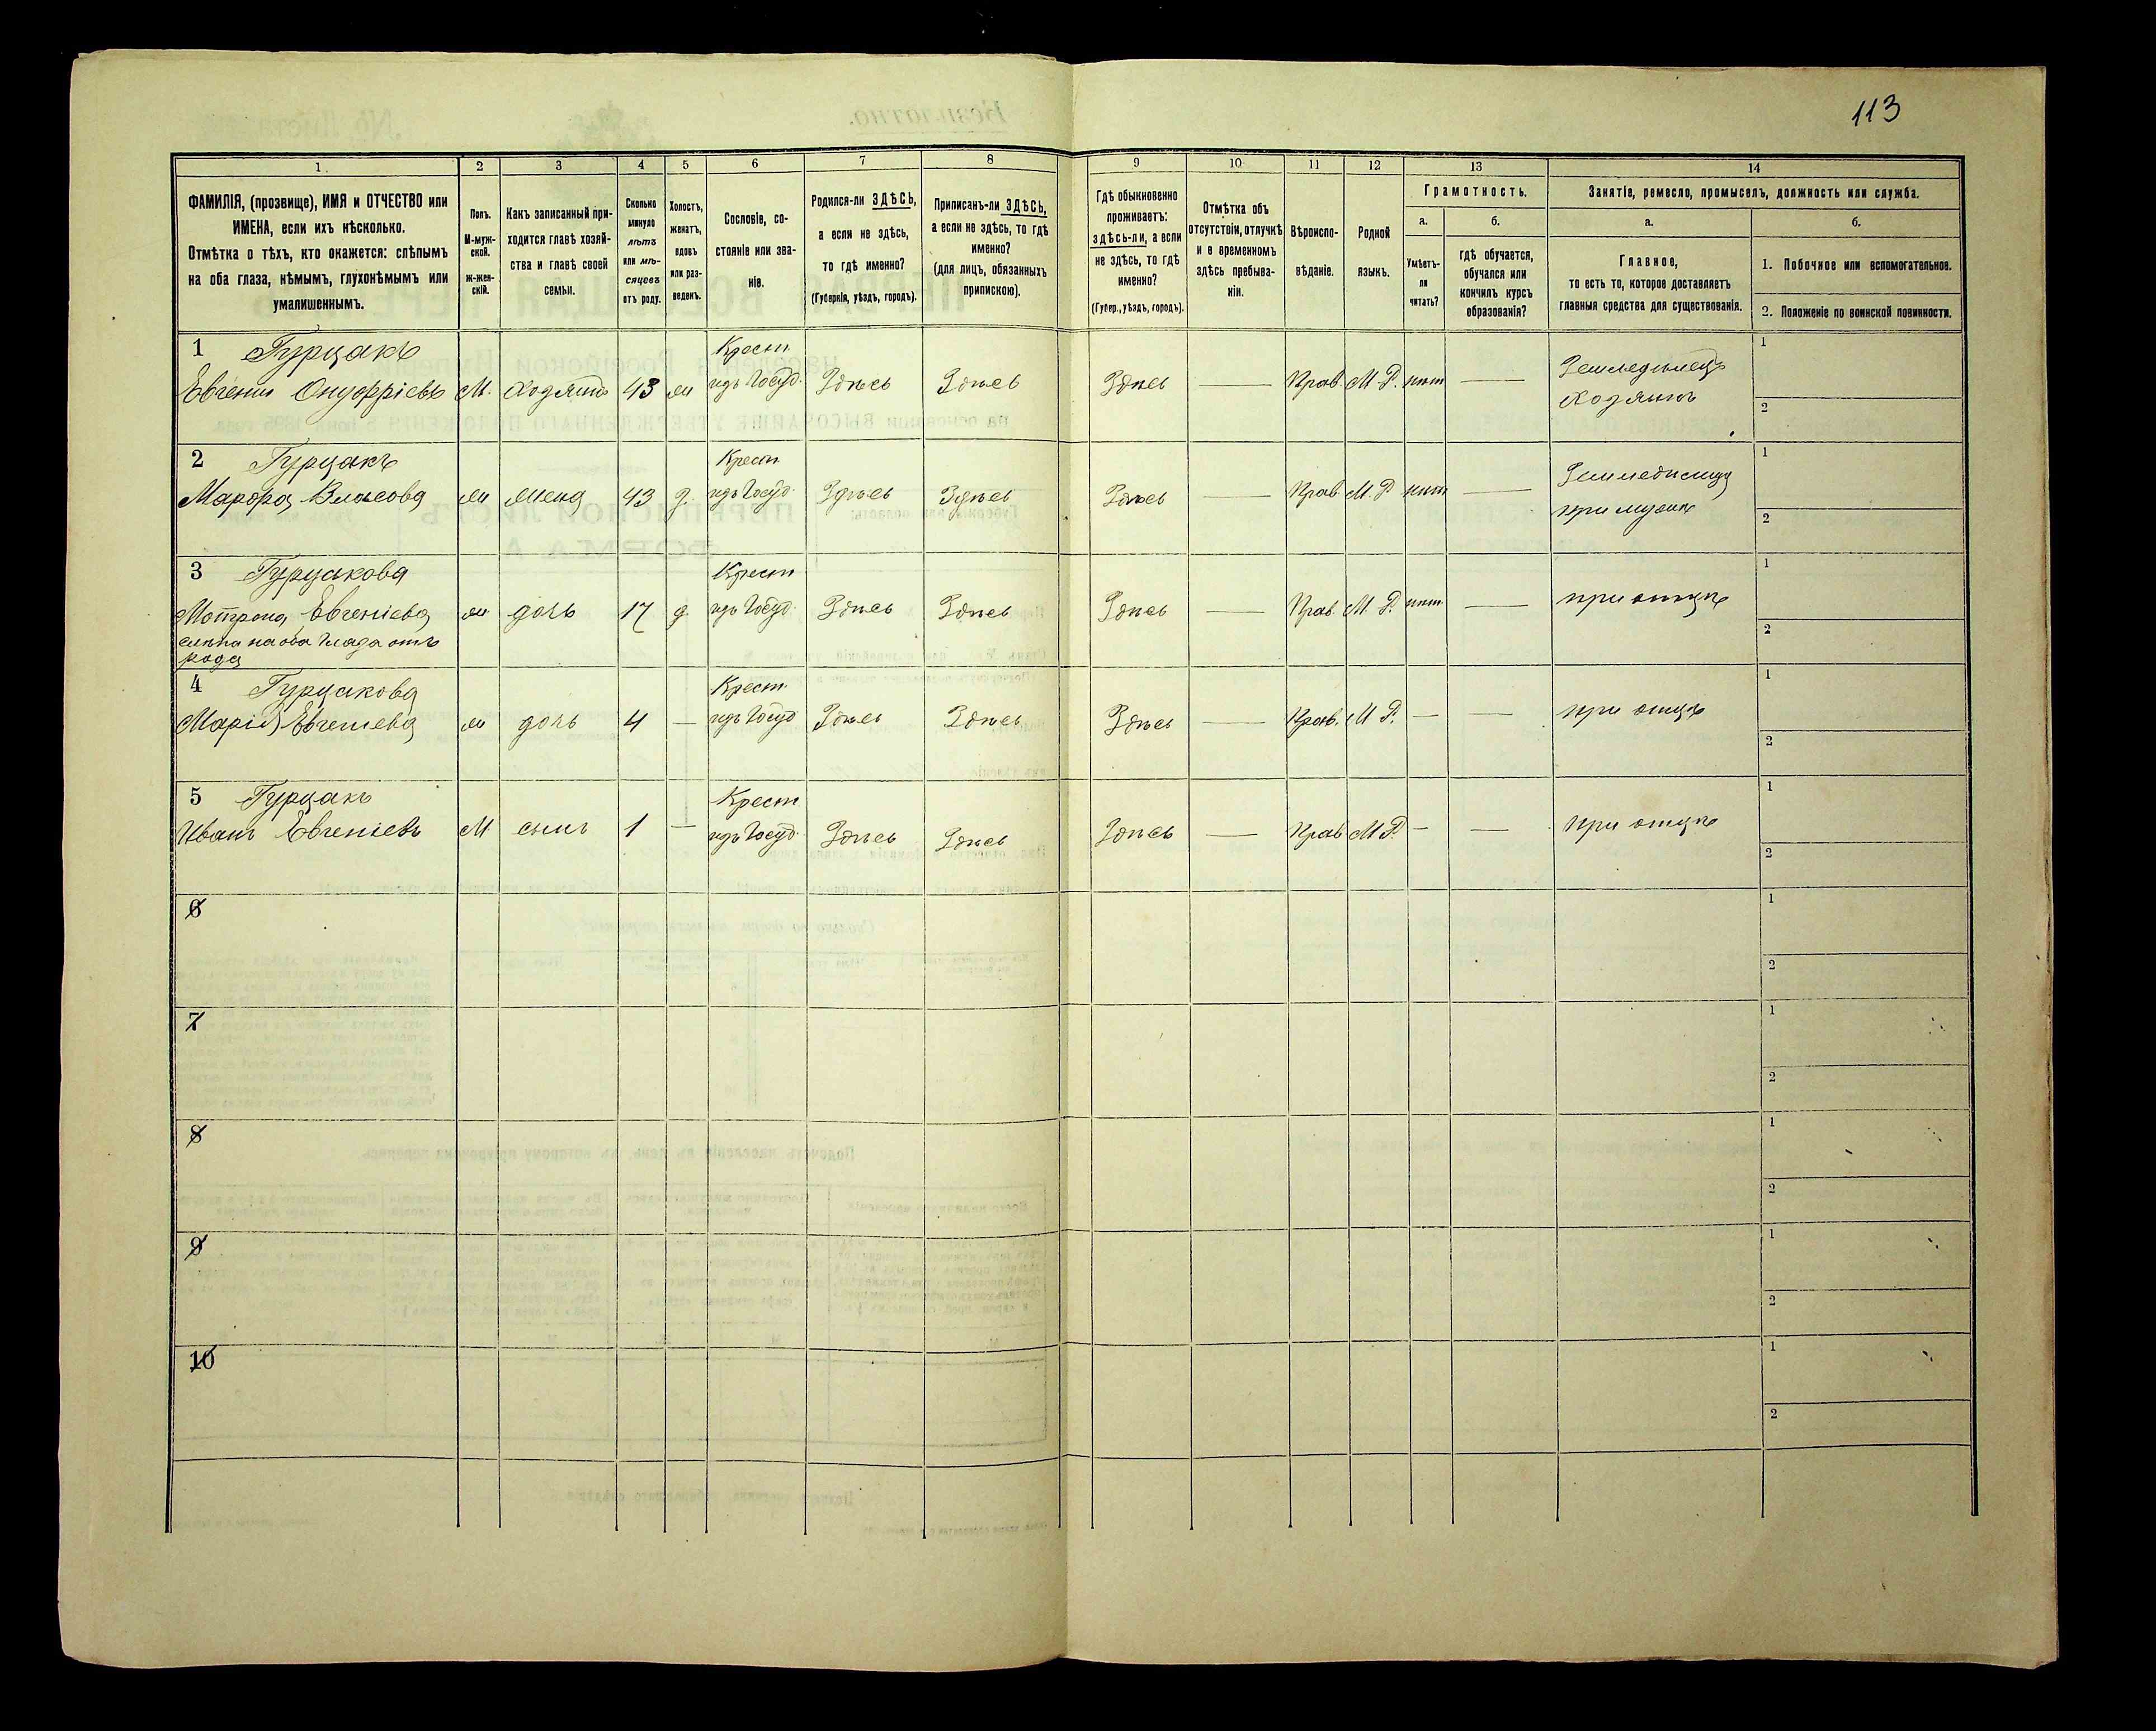 113
1.
2
3
4
5
6
7
8
9
10
11
12
13
14
ФАМИЛІЯ, (прозвище), ИМЯ и ОТЧЕСТВО или
ИМЕНА, если ихъ нѣсколько.
Отмѣтка о тѣхъ, кто окажется: слѣпымъ
на оба глаза, нѣмымъ, глухонѣмымъ или
умалишеннымъ.
Полъ.
М-муж-
ской.
Ж-жен-
скій.
Какъ записанный при-
ходится главѣ хозяй-
ства и главѣ своей
семьи.
Сколько
минуло
лѣтъ
или мѣ-
сяцевъ
отъ роду.
Холостъ,
женатъ,
вдовъ
или раз-
веденъ.
Сословіе, со-
стояніе или зва-
ніе.
Родился-ли ЗДѢСЬ,
а если не здѣсь,
то гдѣ именно?
(Губернія, уѣздъ, городъ).
Приписанъ-ли ЗДѢСЬ,
а если не здѣсь, то гдѣ
именно?
(для лицъ, обязанныхъ
припискою).
Гдѣ обыкновенно
проживаетъ:
здѣсь-ли, а если
не здѣсь, то гдѣ
именно?
(Губер., уѣздъ, городъ).
Отмѣтка объ
отсутствіи, отлучкѣ
и о временномъ
здѣсь пребыва-
ніи.
Вѣроиспо-
вѣданіе.
Родной
языкъ.
Грамотность.
а.
Умѣетъ-
ли
читать?
б.
гдѣ обучается,
обучался или
кончилъ курсъ
образованія?
Занятіе, ремесло, промыселъ, должность или служба.
а.
Главное,
то есть то, которое доставляетъ
главныя средства для существованія.
б.
1. Побочное или вспомогательное.
2. Положеніе по воинской повинности.
1 Гурцакъ
Евгении Онуфріевъ М. хозяинъ 43 ж Крест.
изъ Госуд. Здѣсь Здѣсь Здѣсь — Прав. М. Р. нѣт — Земледѣлецъ
Хозяинъ
1
2
2 Гурцакъ
Марфа Власова ж жена 43 з. Крест.
изъ Госуд. Здѣсь Здѣсь Здѣсь — Прав. М. Р. нѣт —
при мужѣ
1
2
3 Гурцакова
Мотрона Евгеніева ж дочь 17 д. Крест
изъ Госуд. Здѣсь Здѣсь Здѣсь — Прав. М. Р. нѣт — при отцѣ
слѣпа на оба глаза отъ
рода
1
2
4 Гурцакова
Марія Евгеніева ж дочь 4 — Крест.
изъ Госуд Здѣсь Здѣсь Здѣсь — Прав. М Р. — — при отцѣ
1
2
5 Гурцакъ
Иванъ Евгеніевъ М сынъ 1 — Крест
изъ Госуд. Здѣсь Здѣсь Здѣсь — Прав М Р. — — при отцѣ
1
2
6
1
2
7
1
2
8
1
2
9
1
2
10
1
2